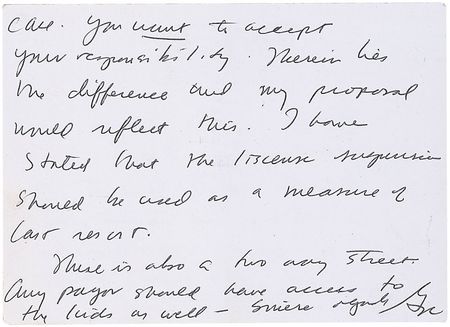 care. You want to accept
your responsibility. Therein lies
the difference and my proposal
would reflect this. I have
stated that the liscense suspension
should be used as a measure of
last resort.
There is also a two way street.
Any payor should have access to
the kids as well – Sincere regards